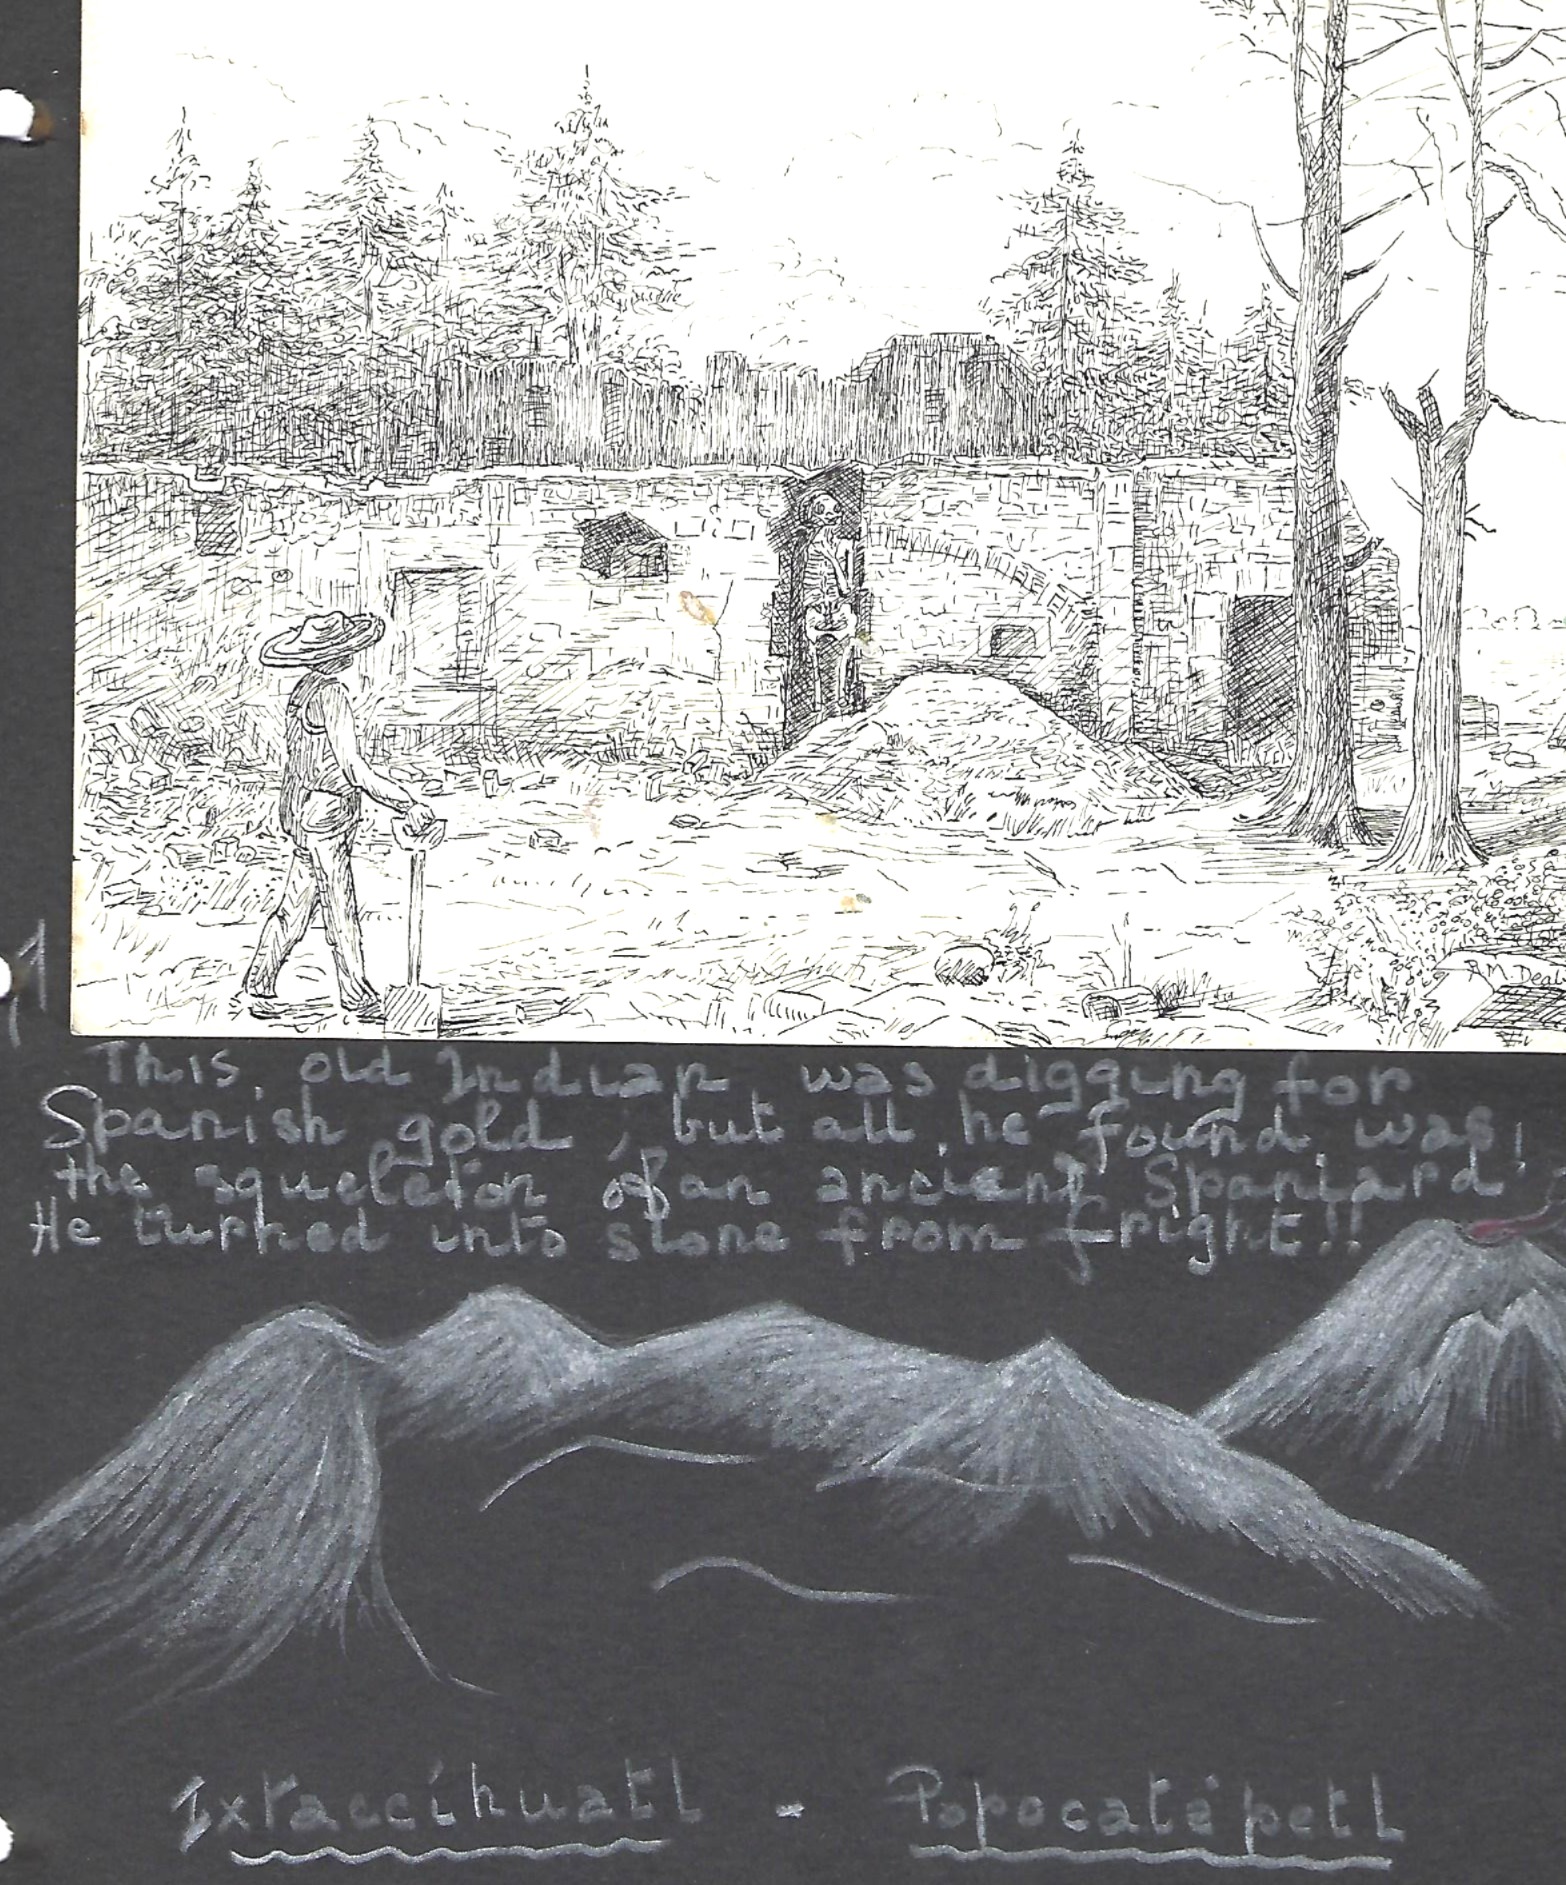 R.M. Deal
This, old Indian, was digging for
Spanish gold, but all, he found, was,
the squeleton of an ancient Spaniard!
He turned into stone from fright!!
Ixtaccíhuatl - Popocatépetl